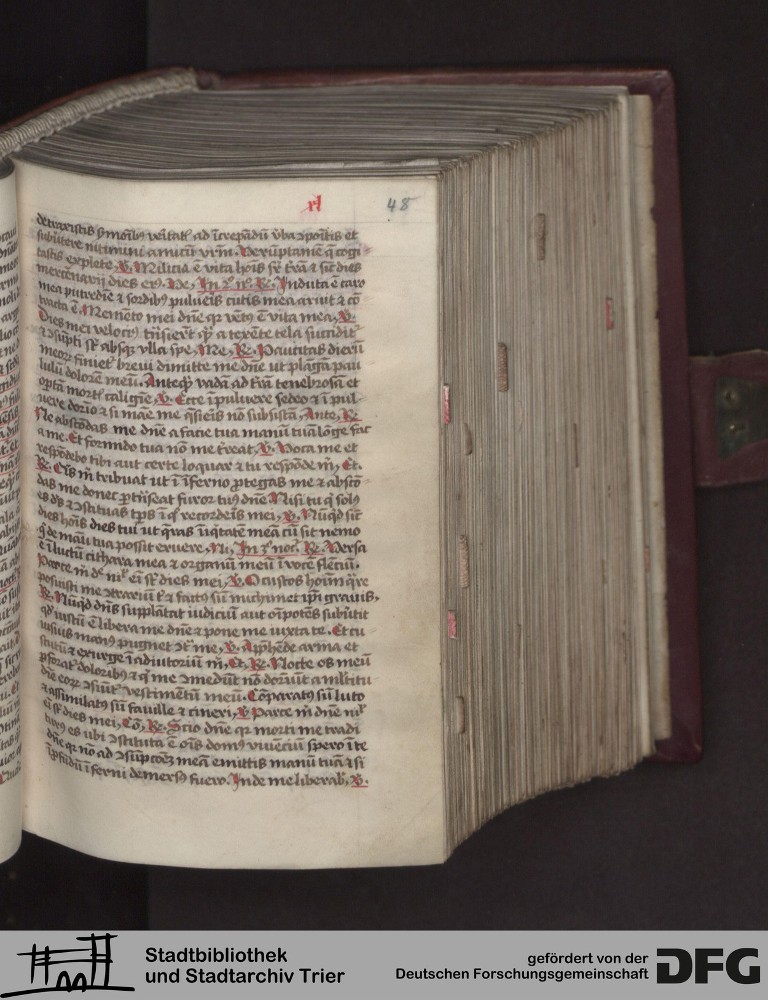 xl
48
detraxistis ẜmoībꝰ veītatꝭ ad īcrepādū v̄ba ↄponitis et
subūtere nitimini amicū vr̄m. Verūptamē q̄ cogi
tastis explete, V. Milicia ē vita hoīs sr̄ t̄rā ⁊ sic̄ dies
mercēnarij dies eiꝰ. Ve, In 2º nº. R. Induta ē caro
mea putredīe ⁊ sordibꝰ pulueis cutis mea aruit ⁊ cō
tracta ē. Memēto mei dn̄e qr vētꝰ ē vita mea, V.
Dies mei velociꝰ trāsierūt qͣ̄ a texēte tela succidit᷑
⁊ ↄsūpti st̄ absqꝫ vlla spe, Me, R. Paucitas dierū
meoꝝ finiet᷑ breui dimitte me dn̄e ut plāgā pau
lulū dolorē meū. Anteqͣ̄ vadā ad t̄rā tenebrosā et
optā mortꝭ caligīe, V. Ecce ī puluere sedeo ⁊ ī pul
uere dormio ⁊ si mane me q̄sieris nō subsistā, Ante, R.
Ne abscōdas me dn̄e a facie tua manū tuā lōge fac
a me. Et formido tua nō me t̄reat, V. Voca me et
respōdebo tibi aut certe loquar ⁊ tu respōde m̄, Et.
R. Qͥs m̄ tribuat ut ī īferno ꝓtegas me ⁊ abscō
das me donec ꝑtrāseat furor tuꝰ dn̄e. Nisi tu qͥ solꝰ
es dꝰ ⁊ ↄstituas tp̄s ī qͦ recorderis mei, V. Nūqͥd sic̄
dies hoīs dies tui ut q̄ras īiqͥtatē meā cū sit nemo
qͥ de manu tua possit eruere, Ni, In 3º noct. R. Versa
ē ī luctū cithara mea ⁊ organū meū ī vocē flenciū.
Parce m̄ dn̄e nil᷑ eī st̄ dies mei, V. O custos hoīm qͣre
posuisti me ↄtrariū t̄ ⁊ factꝰ sū michimet ip̄i grauis,
R. Nūqͥd dn̄s supplātat iudiciū aut oīpotēs subūtit
qd̓ iustū ē libera me dn̄e ⁊ pone me iuxta te. Et cu
iusuis manꝰ pugnet ↄt᷑ me, V. App̄hēde arma et
scutū ⁊ exurge ī adiutoriū m̄, Et, R. Nocte os meū
ꝑforat᷑ doloribꝰ ⁊ qͥ me ↄmedūt nō dormīūt a m̄ltitu
dīe eoꝝ ↄsumit᷑ vestimētū meū. Cōparatꝰ sū luto
⁊ assimilatꝰ sū fauille ⁊ cineri, V. Parce m̄ dn̄e nil᷑
eī st̄ dies mei, Cō, R. Scio dn̄e qr morti me tradi
turꝰ es ubi ↄstituta ē oīs domꝰ viuēciū spero ī te
dn̄e qr nō ad ↄsūpcōeꝫ meā emittis manū tuā ⁊ si
ī ꝓfūdū īferni demersꝰ fuero. Inde me liberab̓, V.
Stadtbibliothek
und Stadtarchiv Trier
gefördert von der
Deutschen Forschungsgemeinschaft
DFG